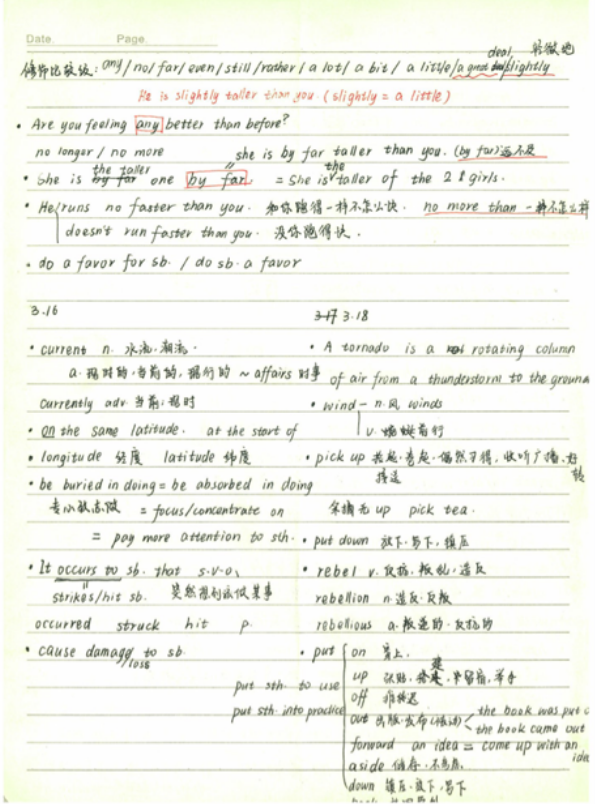 Date. Page.
deal 轻微地
修饰比较级: any / no / far / even / still / rather / a lot / a bit / a little / a great deal / slightly
He is slightly taller than you. (slightly = a little)
• Are you feeling any better than before?
no longer / no more she is by far taller than you. (by far)远不及
• She is by far the taller one by far. = She is the taller of the 28 girls.
• He runs no faster than you. 和你跑得一样不怎么快. no more than 一样不怎么样
doesn't run faster than you. 没你跑得快.
• do a favor for sb. / do sb. a favor
3.16
• current n. 水流.潮流.
a. 现时的,当前的,现行的 ~ affairs 时事
currently adv. 当前;现时
• on the same latitude. at the start of
• longitude 经度 latitude 纬度
• be buried in doing = be absorbed in doing
= focus/concentrate on
= pay more attention to sth.
• It occurs to sb. that s.v.o.
strikes/hit sb. 突然想到该做某事
occurred struck hit p.
• cause damage/loss to sb.
3.17 3.18
• A tornado is a rotating column
of air from a thunderstorm to the ground
• wind — n.风 winds
v. 蜿蜒前行
• pick up 偶然习得,收听广播,好转
接送
up pick tea.
• put down 放下.写下,镇压
• rebel v.反抗.叛乱,造反
rebellion n.造反.反叛
rebellious a.叛逆的.反抗的
• put on 穿上.
up 举手
off 推迟
put sth. to use
put sth. into practice
out 出版.发布 the book was put o
the book came out
forward an idea = come up with an idea
aside 储存.
down 镇压.放下,写下